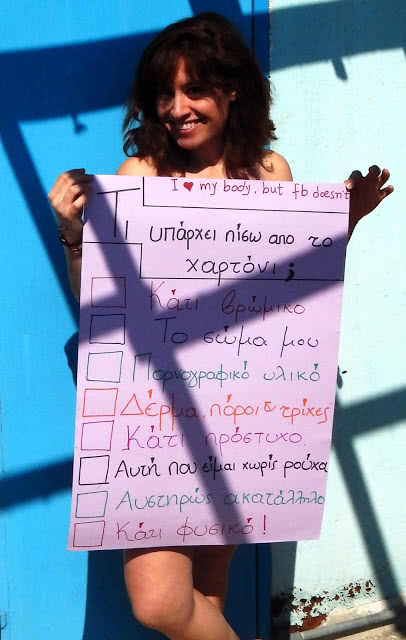 I ♥ my body, but fb doesn't
Τι υπάρχει πίσω απο το
χαρτόνι;
Κάτι βρώμικο
Το σώμα μου
Πορνογραφικό υλικό
Δέρμα, πόροι & τρίχες
Κάτι πρόστυχο.
Αυτή που είμαι χωρίς ρούχα
Αυστηρώς ακατάλληλο
Κάτι φυσικό!